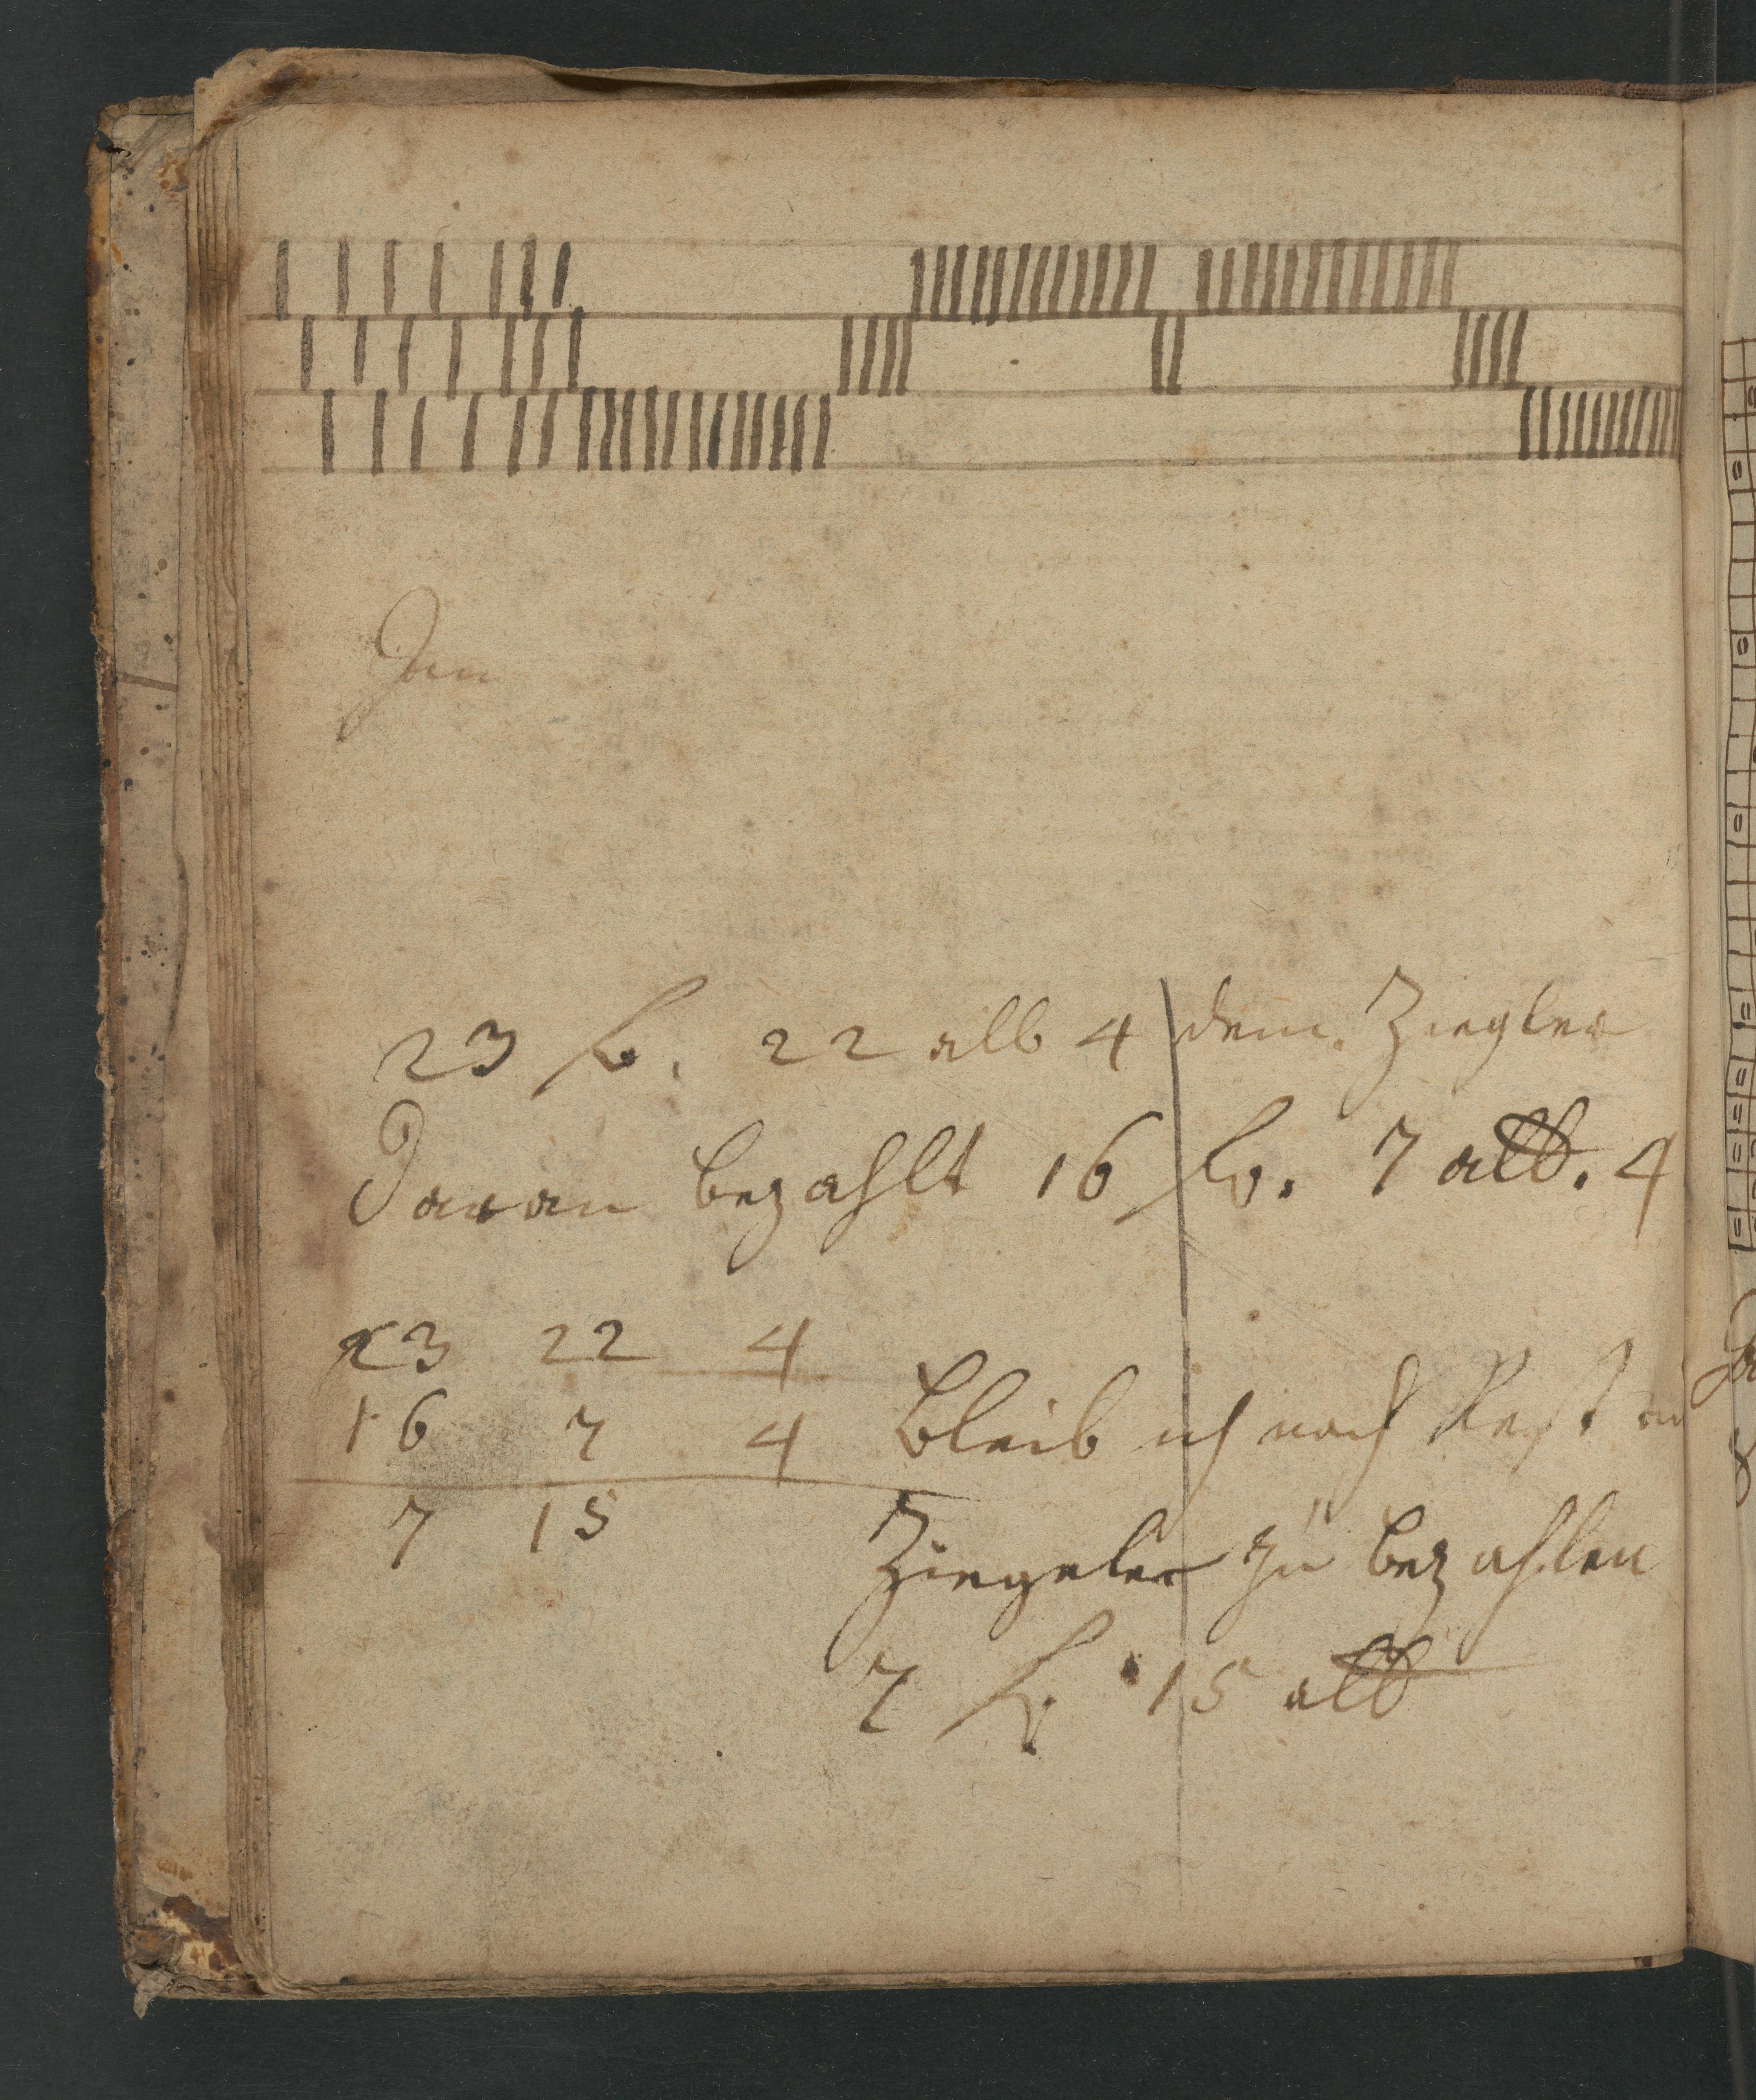 Jan
23 fl. 22 alb 4 dem Ziegler
Daran bezahlt 16 fl. 7 alb. 4
23 22 4
16 7 4 Bleib ich noch Rest
7 15 Ziegeler zu bezahlen
7 fl. 15 alb